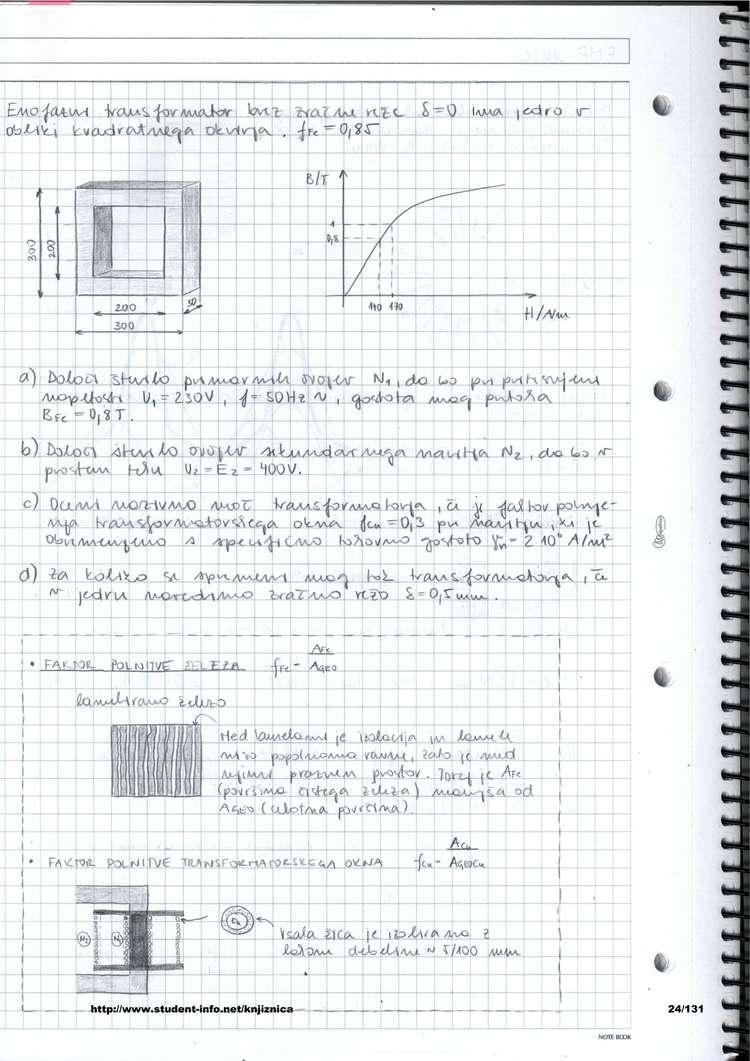 Enofazni transformator brez zračne reže δ=0 ima jedro v
obliki kvadratnega okvirja. fFe = 0,85
B/T
1
0,8
140 170
H/Nm
300
200
200
300
50
a) Določi število primarnih ovojev N1, da bo pri pritisnjeni
napetosti U1 = 230V, f = 50Hz ~, gostota mag pretoka
BFe = 0,8T.
b) Določi število ovojev sekundarnega navitja N2, da bo v
prostem teku U2 = E2 = 400V.
c) Oceni nazivno moč transformatorja, če je faktor polnje-
nja transformatorskega okna fcu = 0,3 pri navitju, ki je
obremenjeno s specifično tokovno gostoto = 2·10⁶ A/m²
d) Za koliko se spremeni mag tok transformatorja, če
v jedru naredimo zračno režo δ = 0,5mm.
• FAKTOR POLNITVE ŽELEZA fFe = AFe / AGEO
lamelirano železo
Med lamelami je izolacija in lamele
niso popolnoma ravne, zato je med
njimi prazen prostor. Torej je AFe
(površina čistega železa) manjša od
AGEO (celotna površina).
• FAKTOR POLNITVE TRANSFORMATORSKEGA OKNA fcu = Acu / AGEOCu
N2 N1
Cu
Vsaka žica je izolirana z
lakom debeline ~ 5/100 mm
http://www.student-info.net/knjiznica
24/131
NOTE BOOK